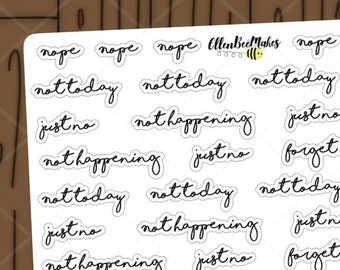 nope nope nope EllenBeeMakes nope
not today not today not today
just no not happening just no
not happening just no forget
not today not today not today
just no not happening just no
not happening just no forget